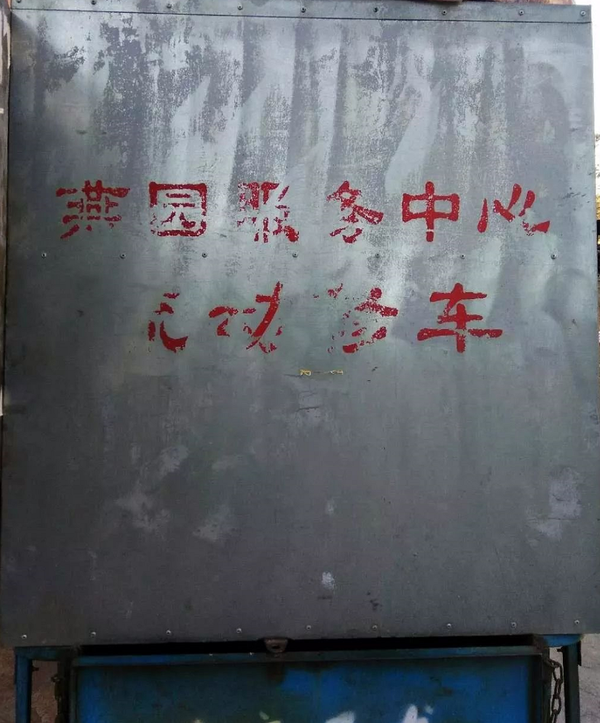 燕园服务中心
动 车